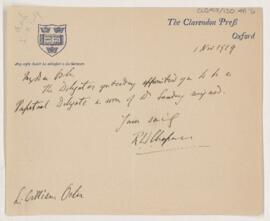 CUS417/130.48.6
The Clarendon Press
Oxford
Any reply should be addressed to the Secretary
1 Nov 1919
My dear Osler
The Delegates yesterday appointed you to be a
Perpetual Delegate a room of Dr Sanday resigned.
Yours sincly
R W Chapman
Sir William Osler